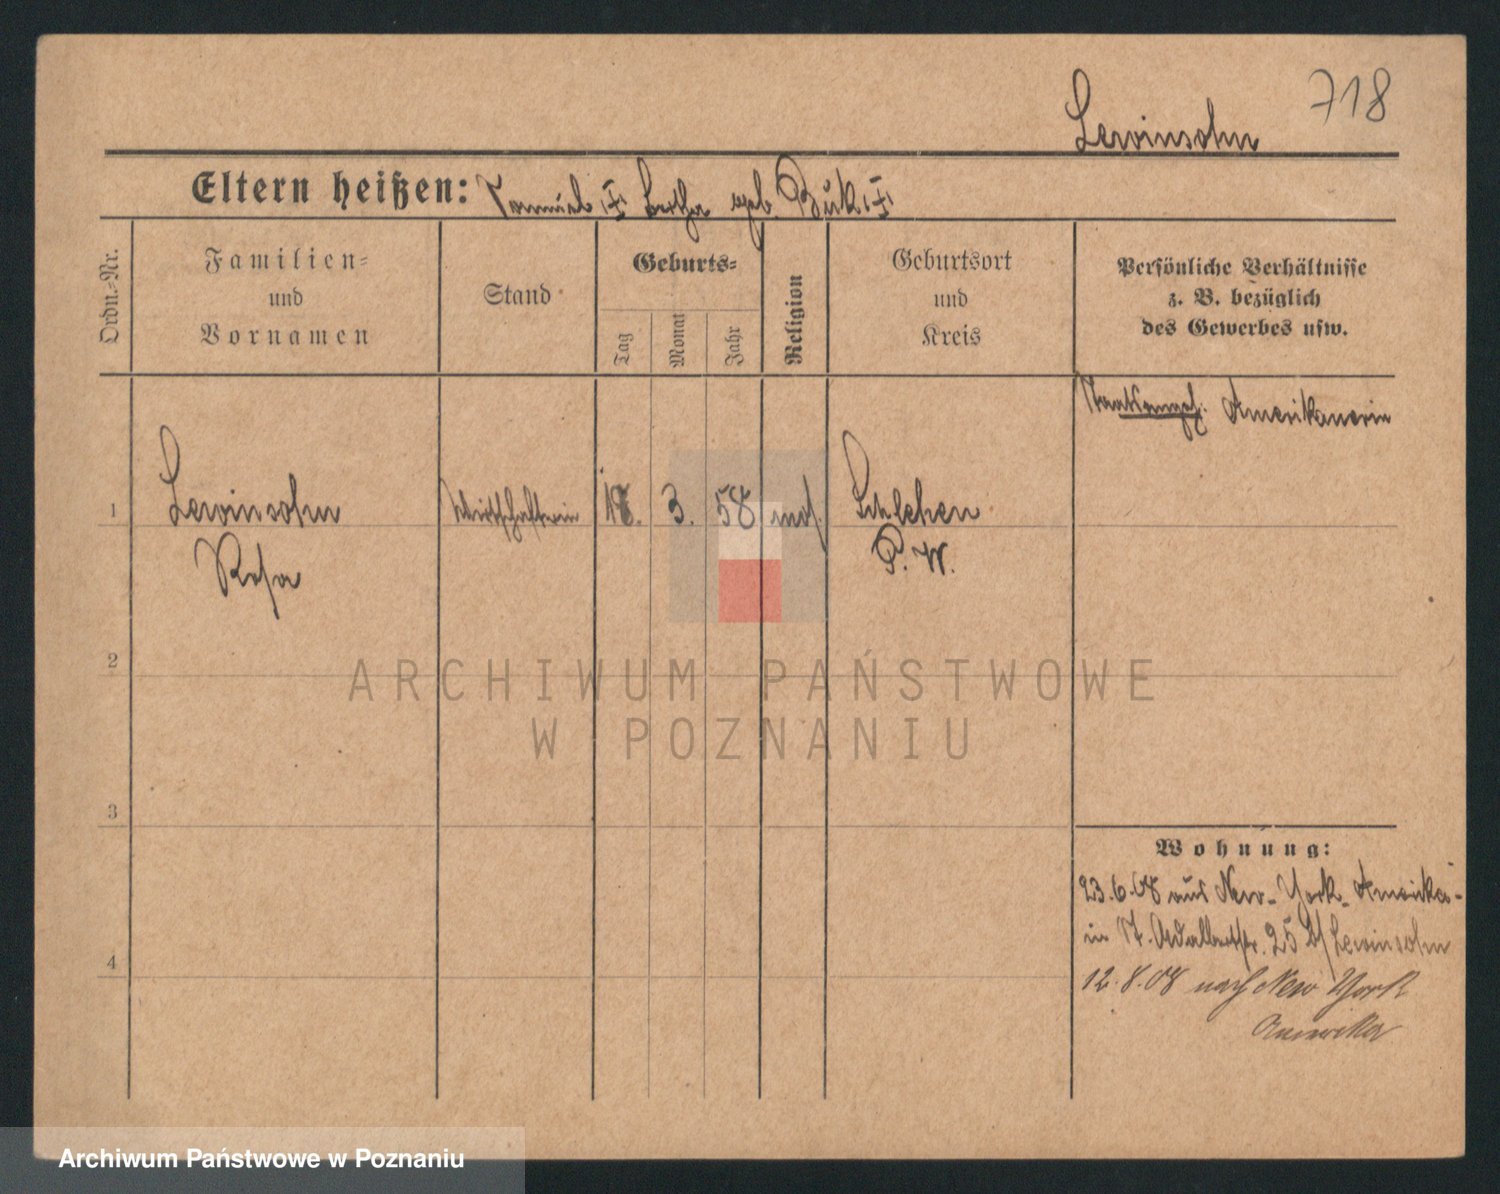 718
Lewinsohn
Eltern heißen: Samuel geb. Buk
Ordn.-Nr.
Familien-
und
Vornamen
Stand
Geburts-
Tag
Monat
Jahr
Religion
Geburtsort
und
Kreis
Persönliche Verhältnisse
z. B. bezüglich
des Gewerbes usw.
Staatsangeh. Amerikanerin
1
Lewinsohn
Rosa
Wirtschafterin
18.
3.
58
mos.
P. W.
2
ARCHIWUM PAŃSTWOWE
W POZNANIU
3
4
Wohnung:
23.6.08 aus New-York-Amerika-
in St. Adalbertstr. 25 b/Lewinsohn
12.8.08 nach New York
Amerika
Archiwum Państwowe w Poznaniu